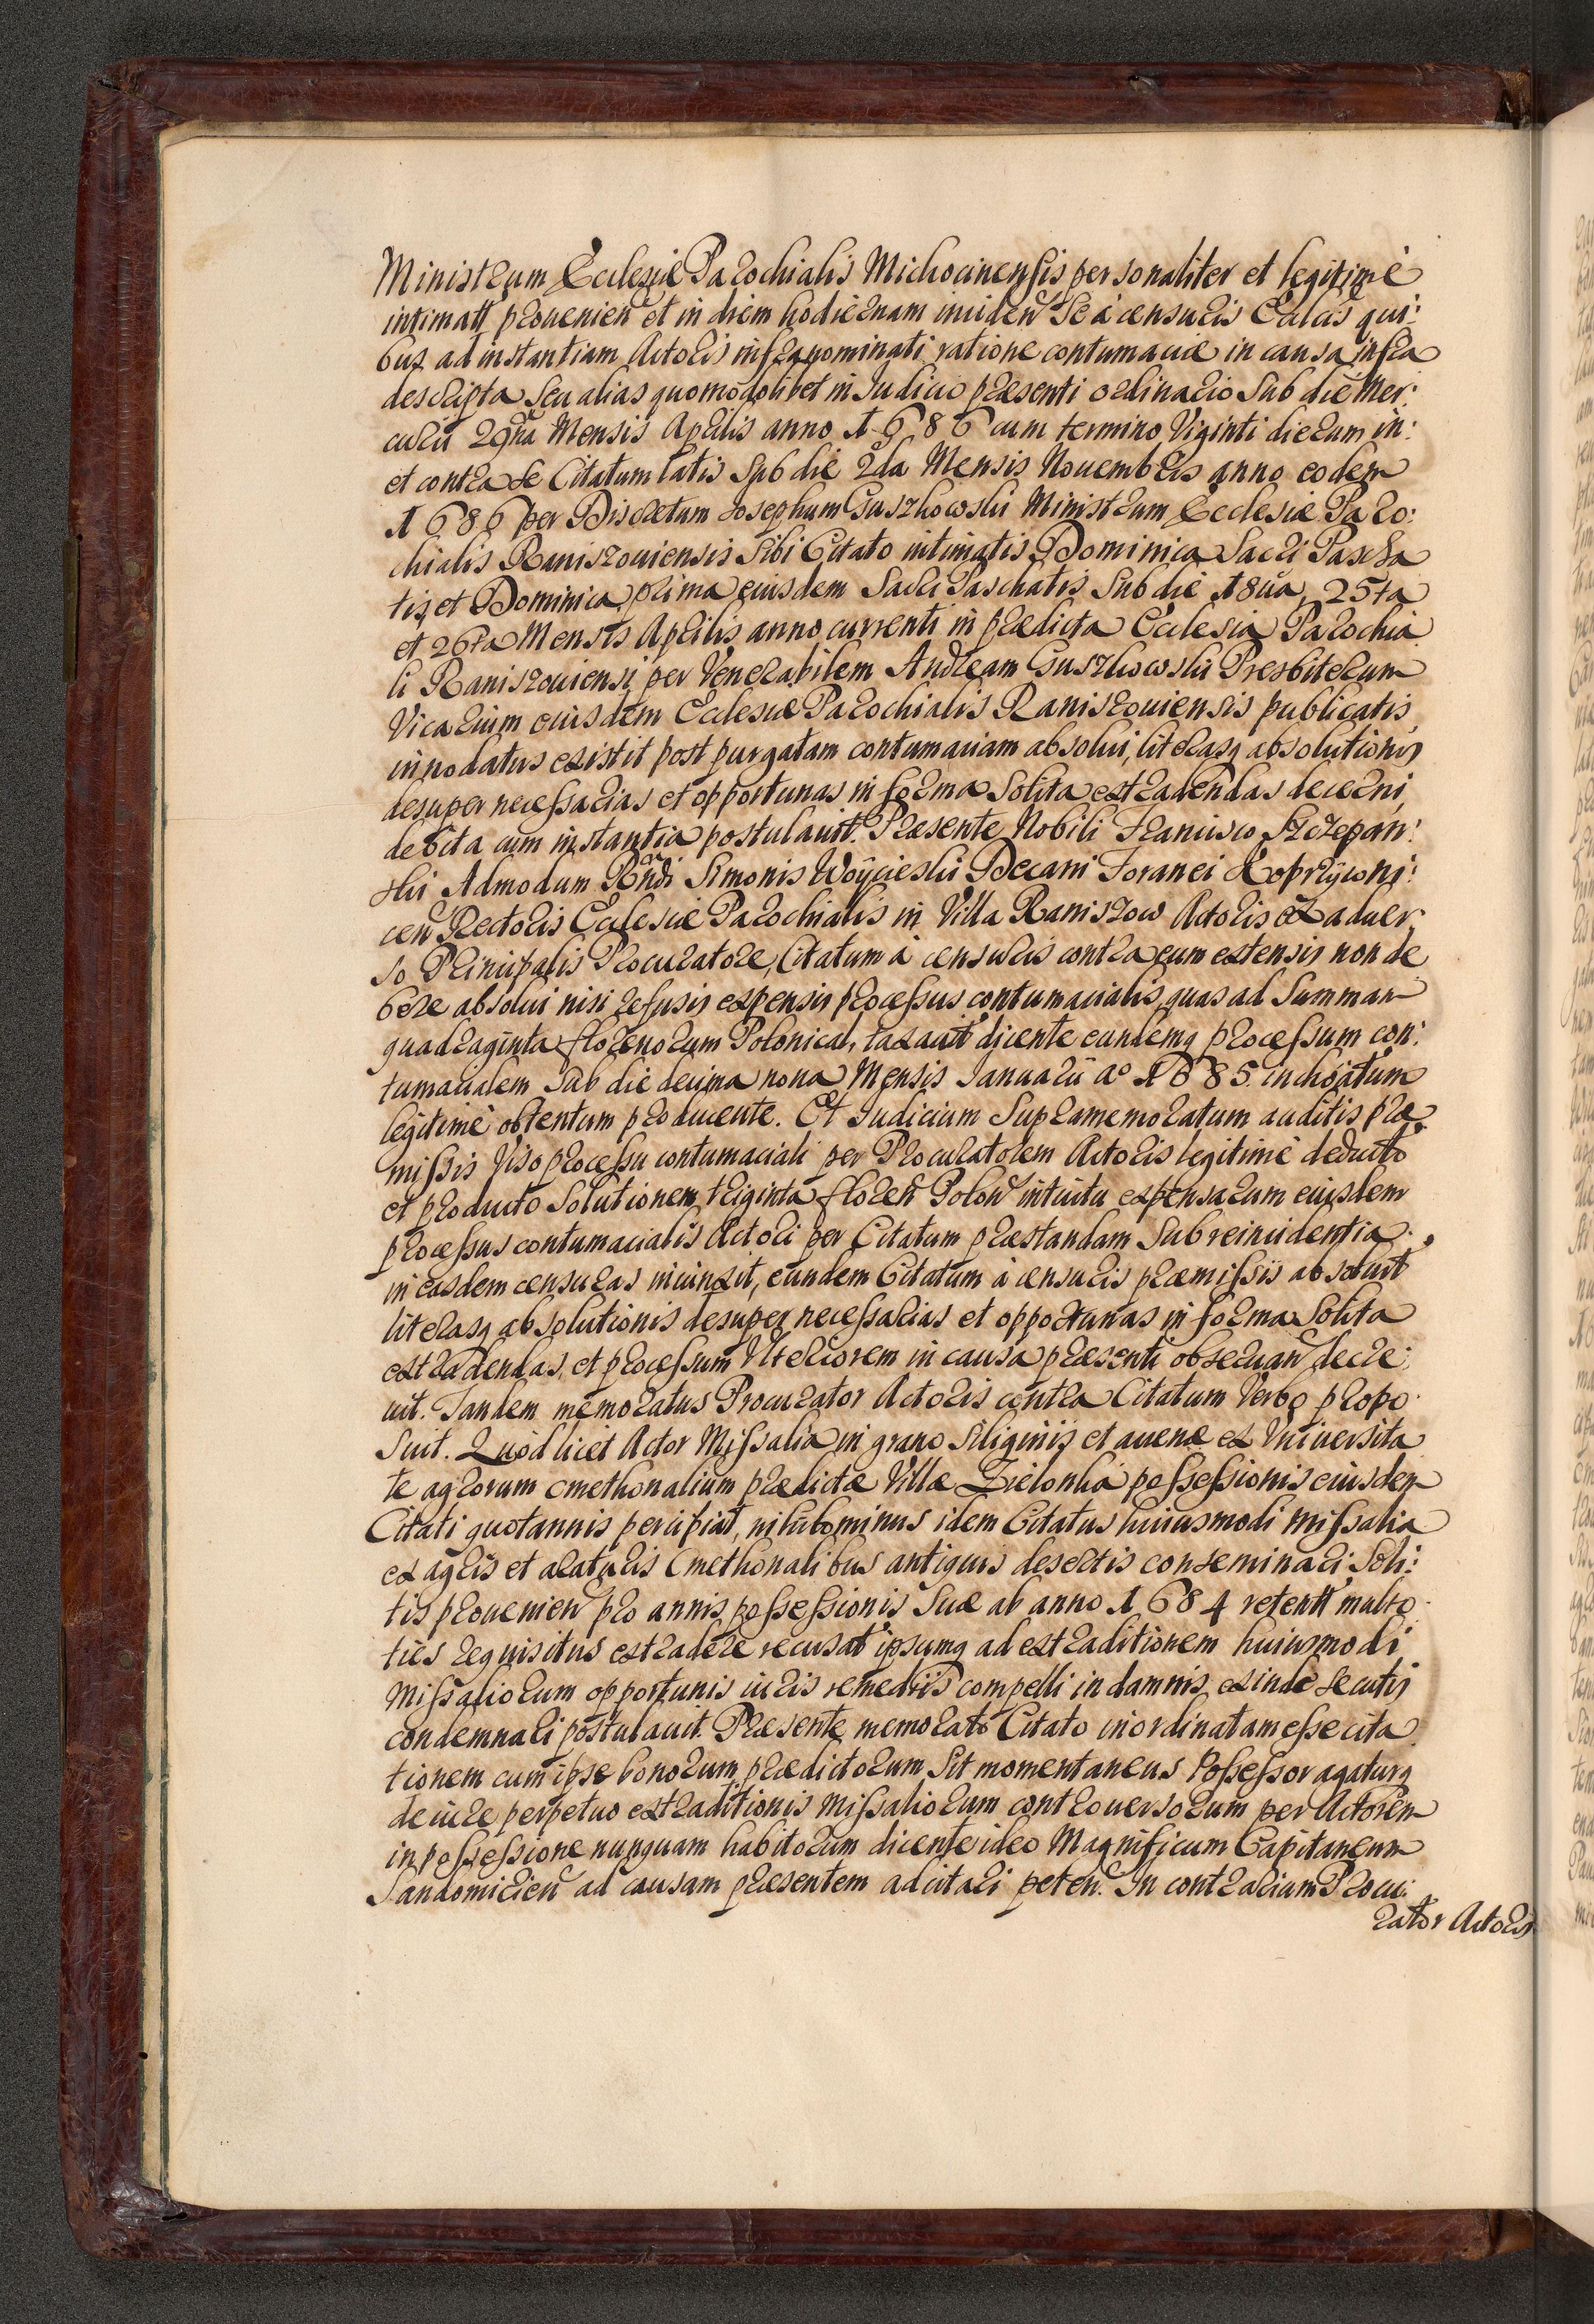 Ministrum Ecclesiæ Parochialis Michocinensis personaliter et legitimè
intimatt provenien et in diem hodiernam inciden Se à censuris Ecclcis qui:
bus ad instantiam Actoris infranominati ratione contumaciæ in causa infra
descripta Seu alias quomodolibet in Judicio præsenti ordinario Sub die Mer:
curii 29na Mensis Aprilis anno 1686 cum termino Viginti dierum in:
et contra Se Citatum latis Sub die 2da Mensis Novembris anno eodem
1686 per Discretum Josephum Guszkowski Ministrum Ecclesiæ Paro:
chialis Raniszoviensis Sibi Citato intimatis Dominica Sacri Pascha
tis, et Dominica prima eiusdem Sacri Paschatis Sub die 18va, 25ta
et 26ta Mensis Aprilis anno currenti in prædicta Ecclesia Parochia
li Raniszoviensi per Venerabilem Andream Guszkowski Presbiterum
Vicarium eiusdem Ecclesiæ Parochialis Raniszoviensis publicatis
innodatus existit post purgatam contumaciam absolvi, literasq absolutionis
desuper necessarias et opportunas in forma Solita extradendas decerni
debita cum instantia postulavit. Præsente Nobili Francisco Szczepan:
ski Admodum Rndi Simonis Woÿcieski Decani Foranei Koprzÿwni:
cen Rectoris Ecclesiæ Parochialis in Villa Raniszow Actoris ex adver
so Principalis Procuratore, Citatum à censuris contra eum extensis non de
bere absolvi nisi refusis expensis processus contumacialis, quas ad Summam
quadraginta florenorum Polonical, taxavit dicente eundemq processum con:
tumacialem Sub die decima nona Mensis Januarii aº 1685. inchoatum
legitimè obtentum producente. Et Judicium Supramemoratum auditis præ
missis Viso processu contumaciali per Procuratorem Actoris legitimè deducto
et producto Solutionem triginta floren Polon intuitu expensarum eiusdem
processus contumacialis Actori per Citatum præstandam Sub reincidentia
in easdem censuras iniunxit, eundem Citatum à censuris præmissis absolvit
literasq absolutionis desuper necessarias et opportunas in forma Solita
extradendas, et processum Vlteriorem in causa præsenti observan decre:
vit. Tandem memoratus Procurator Actoris contra Citatum Verbo propo
Suit. Quòd licet Actor Missalia in grano Siliginis et avenæ ex Vniversita
te agrorum cmethonalium prædictæ Villæ Zielonka possessionis eiusdem
Citati quotannis percipiat, nihilominus idem Citatus huiusmodi missalia
ex agris et araturis Cmethonalibus antiquis desertis conseminari Soli:
tis provenien pro annis possessionis Suæ ab anno 1684 retentt multo
ties requisitus extradere recusat ipsumq ad extraditionem huiusmodi
Missaliorum opportunis iuris remediis compelli in damnis exindè secutis
condemnari postulavit. Præsente memorato Citato inordinatam esse cita
tionem cum ipse bonorum prædictorum Sit momentaneus Possessor agaturq
de iure perpetuo extraditionis Missaliorum controversorum per Actorem
in possessione nunquam habitorum dicente ideo Magnificum Capitaneum
Sandomirien ad causam præsentem adcitari peten. In contrarium Procu:
rator Actoris